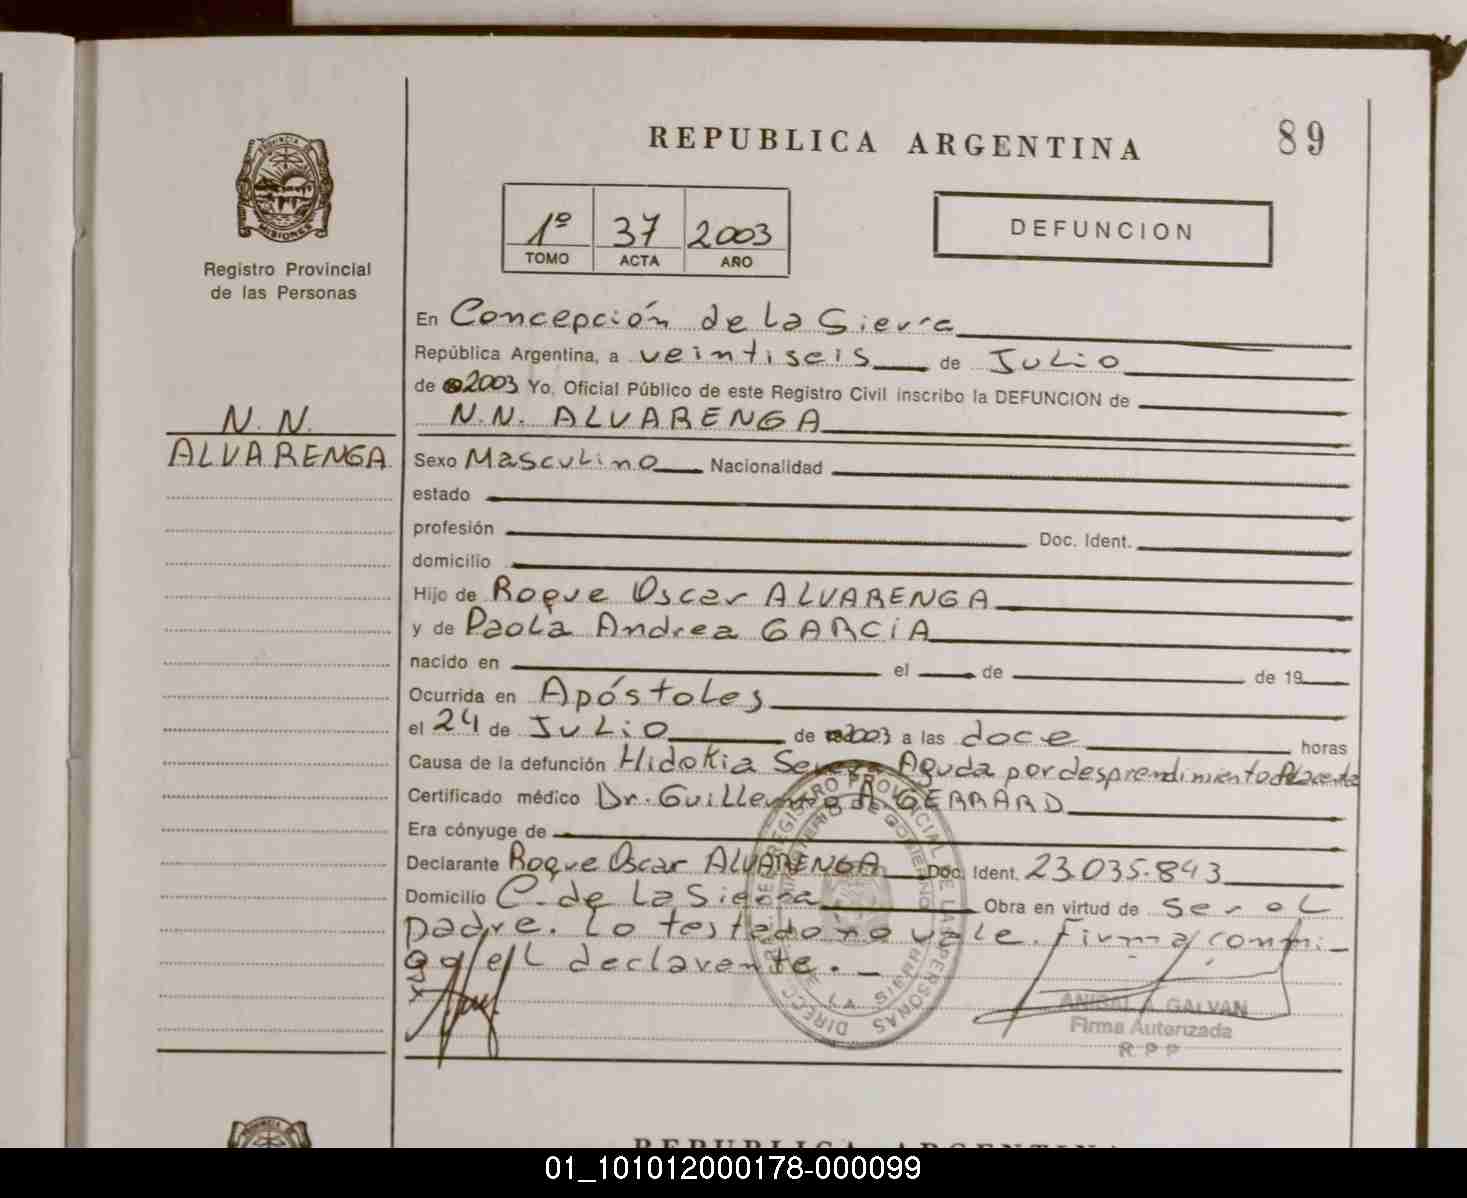 REPUBLICA ARGENTINA
89
PROVINCIA DE
MISIONES
Registro Provincial
de las Personas
1º 37 2003
TOMO ACTA AÑO
DEFUNCION
En Concepción de La Sierra
República Argentina, a veintiseis de Julio
de 2003 Yo, Oficial Público de este Registro Civil inscribo la DEFUNCION de
N. N.
ALVARENGA
N.N. ALVARENGA
Sexo Masculino Nacionalidad
estado
profesión Doc. Ident.
domicilio
Hijo de Roque Oscar ALVARENGA
y de Paola Andrea GARCIA
nacido en el de de 19
Ocurrida en Apóstoles
el 24 de Julio de 2003 a las doce horas
Causa de la defunción Hidokia Severa Aguda por desprendimiento de Placenta
Certificado médico Dr. Guillermo A. GERRARD
Era cónyuge de
Declarante Roque Oscar ALVARENGA Doc. Ident. 23.035.843
Domicilio C. de La Sierra Obra en virtud de ser el
padre. Lo testado no vale. Firma conmi-
go el declarante.
DIRECC. REGISTRO PROVINCIAL DE LAS PERSONAS
MINISTERIO DE GOBIERNO
ANIBAL A. GALVAN
Firma Autorizada
R P P
REPUBLICA ARGENTINA
01_101012000178-000099